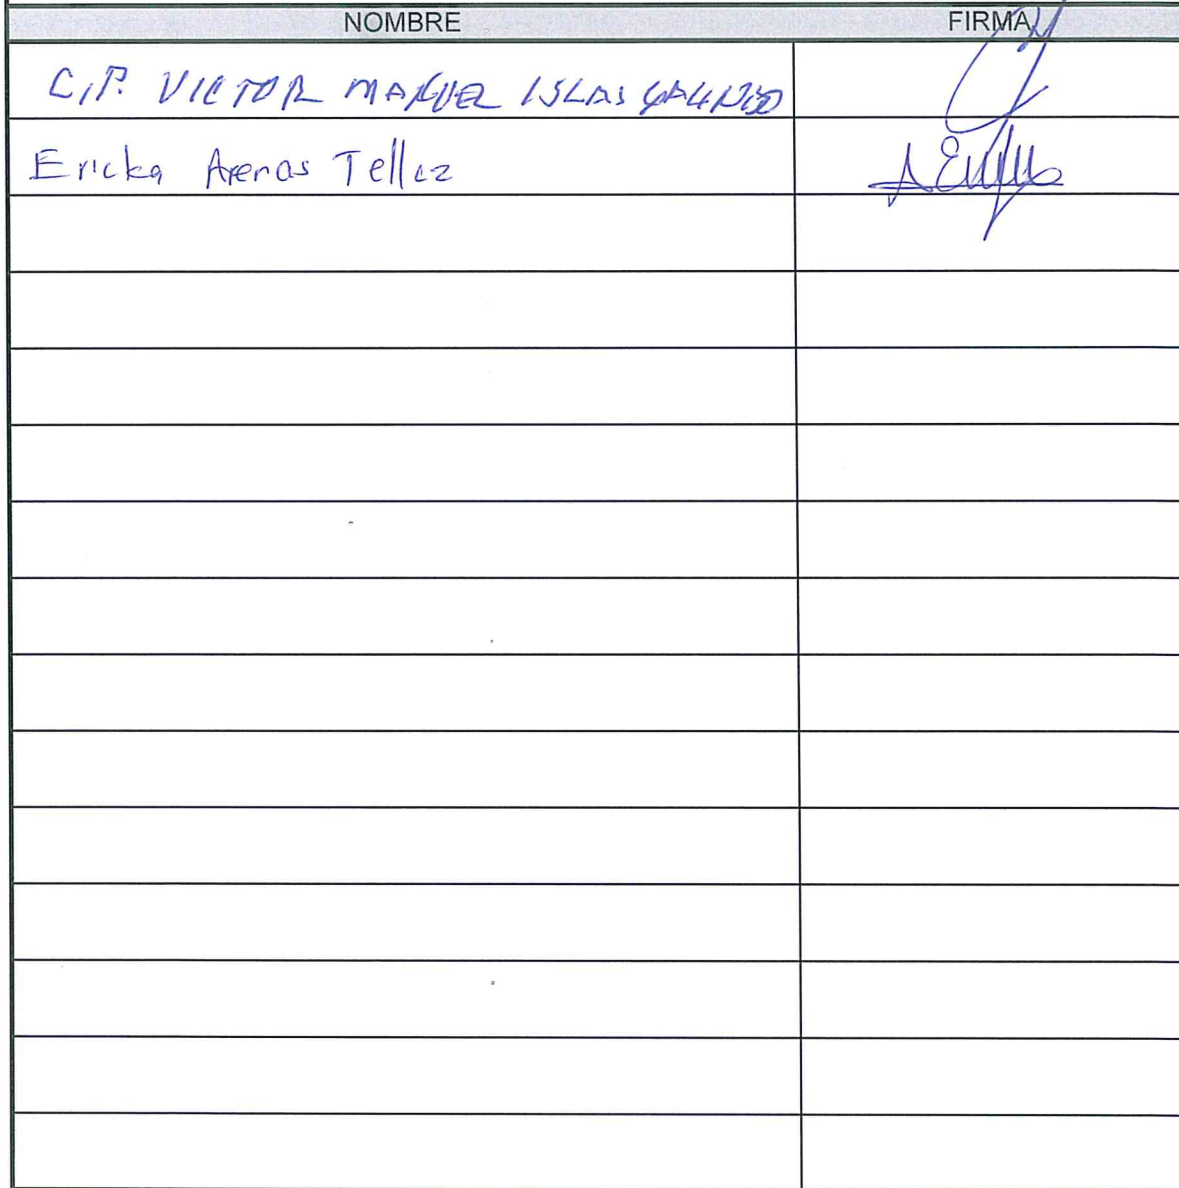 NOMBRE FIRMA
C.P. VICTOR MANUEL ISLAS GALINDO
Ericka Arenas Tellez